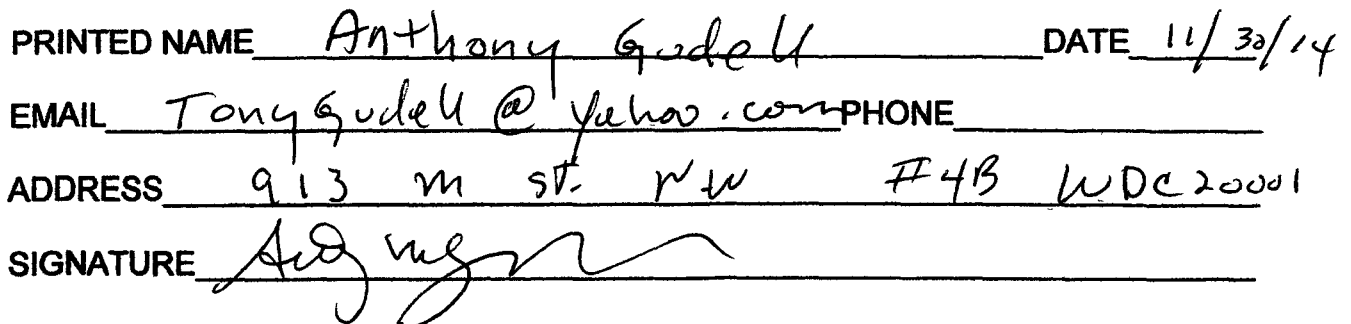 PRINTED NAME Anthony Gudell DATE 11/30/14
EMAIL TonyGudell@yahoo.com PHONE
ADDRESS 913 M St. NW #4B WDC 20001
SIGNATURE